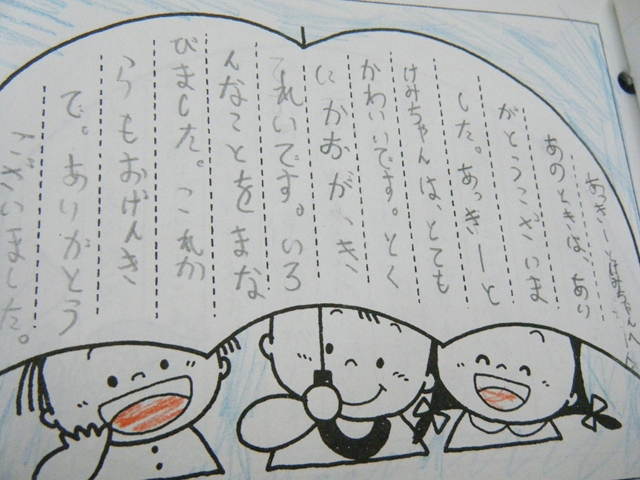 あっきーと
あのときは、あり
がとうございま
した。あっきーと
けみちゃんは、とても
かわいです。とく
にかおが、き
れいです。いろ
んなことをまな
びました。これか
らもおげんき
で。ありがとう
ございました。